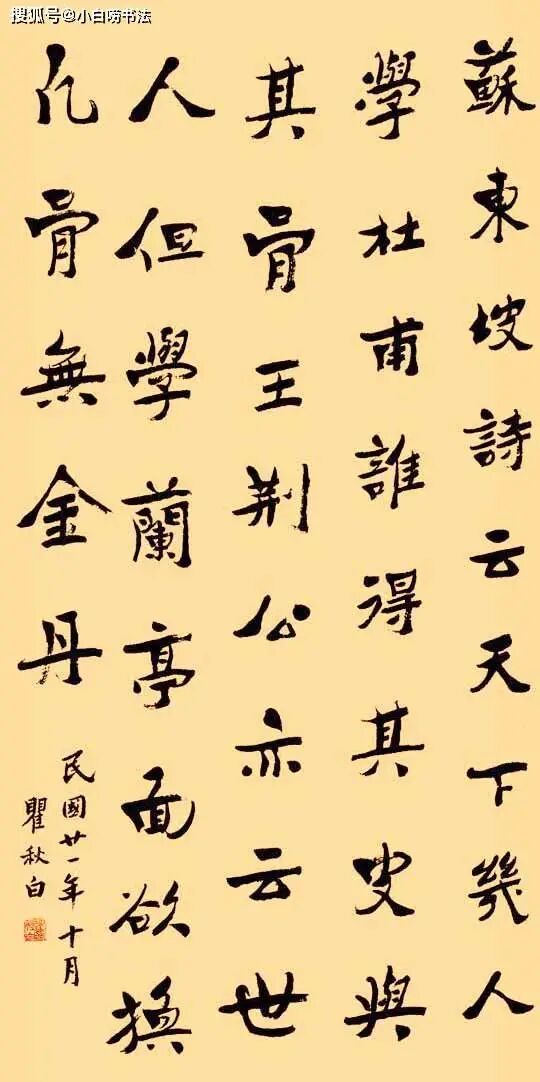 搜狐号@小白唠书法
蘇東坡詩云天下幾人
學杜甫誰得其皮與
其骨王荆公亦云世
人但學蘭亭面欲換
凡骨無金丹
民國廿一年十月
瞿秋白